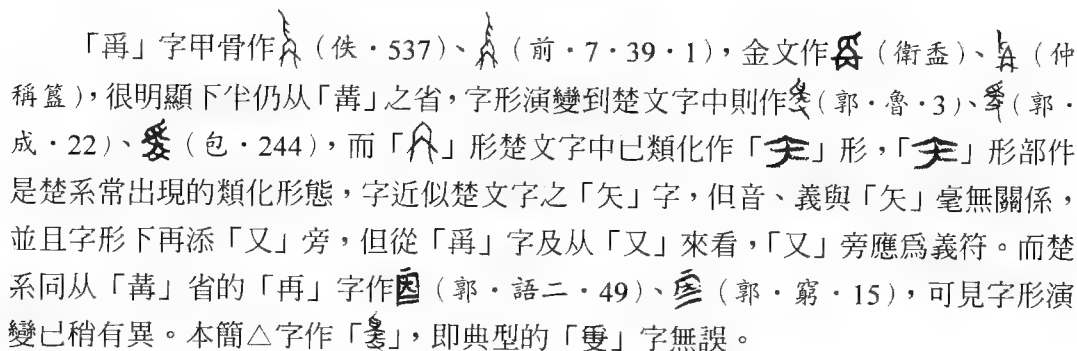 「爯」字甲骨作（佚．537）、（前．7．39．1），金文作（衛盉）、（仲
稱簋），很明顯下半仍从「冓」之省，字形演變到楚文字中則作（郭．魯．3）、（郭．
成．22）、（包．244），而「」形楚文字中已類化作「」形，「」形部件
是楚系常出現的類化形態，字近似楚文字之「矢」字，但音、義與「矢」毫無關係，
並且字形下再添「又」旁，但從「爯」字及从「又」來看，「又」旁應爲義符。而楚
系同从「冓」省的「再」字作（郭．語二．49）、（郭．窮．15），可見字形演
變已稍有異。本簡△字作「」，即典型的「」字無誤。